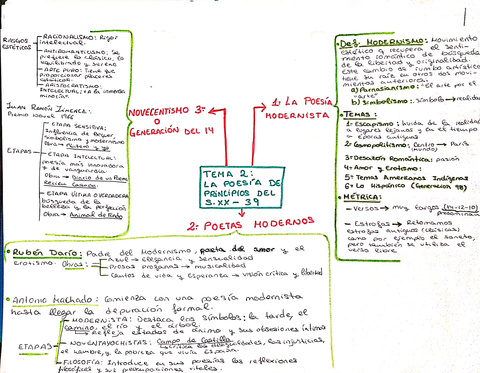 TEMA 2:
LA POESÍA DE
PRINCIPIOS DEL
S.XX - 39
1: LA POESÍA
MODERNISTA
• Def. MODERNISMO: Movimiento
estético q recupera el senti-
miento romántico de búsqueda
de la libertad y originalidad.
este cambio de rumbo artístico
tiene su raíz en otros dos movi-
mientos anteriores.
a) Parnasianismo: "El arte por el
arte"
b) Simbolismo: símbolo → realidad
• TEMAS:
1- Escapismo: huida de la realidad
a lugares lejanos y en el tiempo
→ épocas antiguas
2- Cosmopolitismo: Centro → París
(mundo)
3- Desazón Romántica: pasión
4- Amor y Erotismo:
5- Temas Americanos Indígenas
6- Lo Hispánico (Generación 98)
• MÉTRICA:
- Versos → muy largos (14-12-10)
predominan
- Estrofas → Retomamos
estrofas antiguas (clásicas)
como por ejemplo el soneto,
pero también se utiliza el
verso libre.
2: POETAS MODERNOS
• Rubén Darío: Padre del Modernismo, poeta del amor y el
erotismo. Obras:
Azul → elegancia y sensualidad
Prosas profanas → musicalidad
Cantos de vida y Esperanza → visión crítica y libertad
• Antonio Machado: Comienza con una poesía modernista
hasta llegar la depuración formal.
ETAPAS
MODERNISTA: Destaca los símbolos; la tarde, el
camino, el río y el árbol.
Refleja estados de ánimo y sus obsesiones íntimas
NOVENTAYOCHISTAS: Campo de Castilla
→ critica las desigualdades, las injusticias,
el hambre, y la pobreza que vivía España.
FILOSOFÍA: Introduce en sus poesías las reflexiones
filosóficas y sus preocupaciones vitales.
NOVECENTISMO 3:
O
GENERACIÓN DEL 14
RASGOS
ESTÉTICOS
- RACIONALISMO: Rigor
intelectual.
- ANTIROMANTICISMO: Se
prefiere lo clásico, lo
equilibrado y sereno
- ARTE PURO: Tiene que
proporcionar placeres
estéticos.
- ARISTOCRATISMO
INTELECTUAL:
minorías"
JUAN RAMÓN JIMÉNEZ:
Premio Nobel 1956
ETAPAS
- ETAPA SENSITIVA:
Influencia de Bécquer,
simbolismo y modernismo
Obra → Platero y yo
- ETAPA INTELECTUAL:
poesía más innovadora
y de vanguardia
Obra → Diario de un Poeta
Recién Casado.
- ETAPA ÚLTIMA O VERDADERA
búsqueda de la
belleza y la perfección
Obra → Animal de Fondo